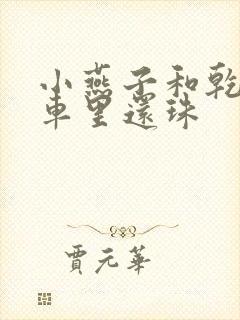 小燕子和乾
車里還珠
賈元華